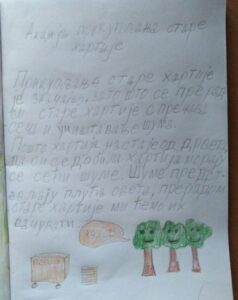 Акција прикупљања старе
хартије
Прикупљање старе хартије
је значајно, зато што се прерадом
старе хартије спречава
сеча и уништавање шума.
Пошто хартија настаје од дрвета,
да би се добила хартија морају
се сећи шуме. Шуме представљају
плућа света, прерадом
старе хартије ми ћемо их
сачувати.